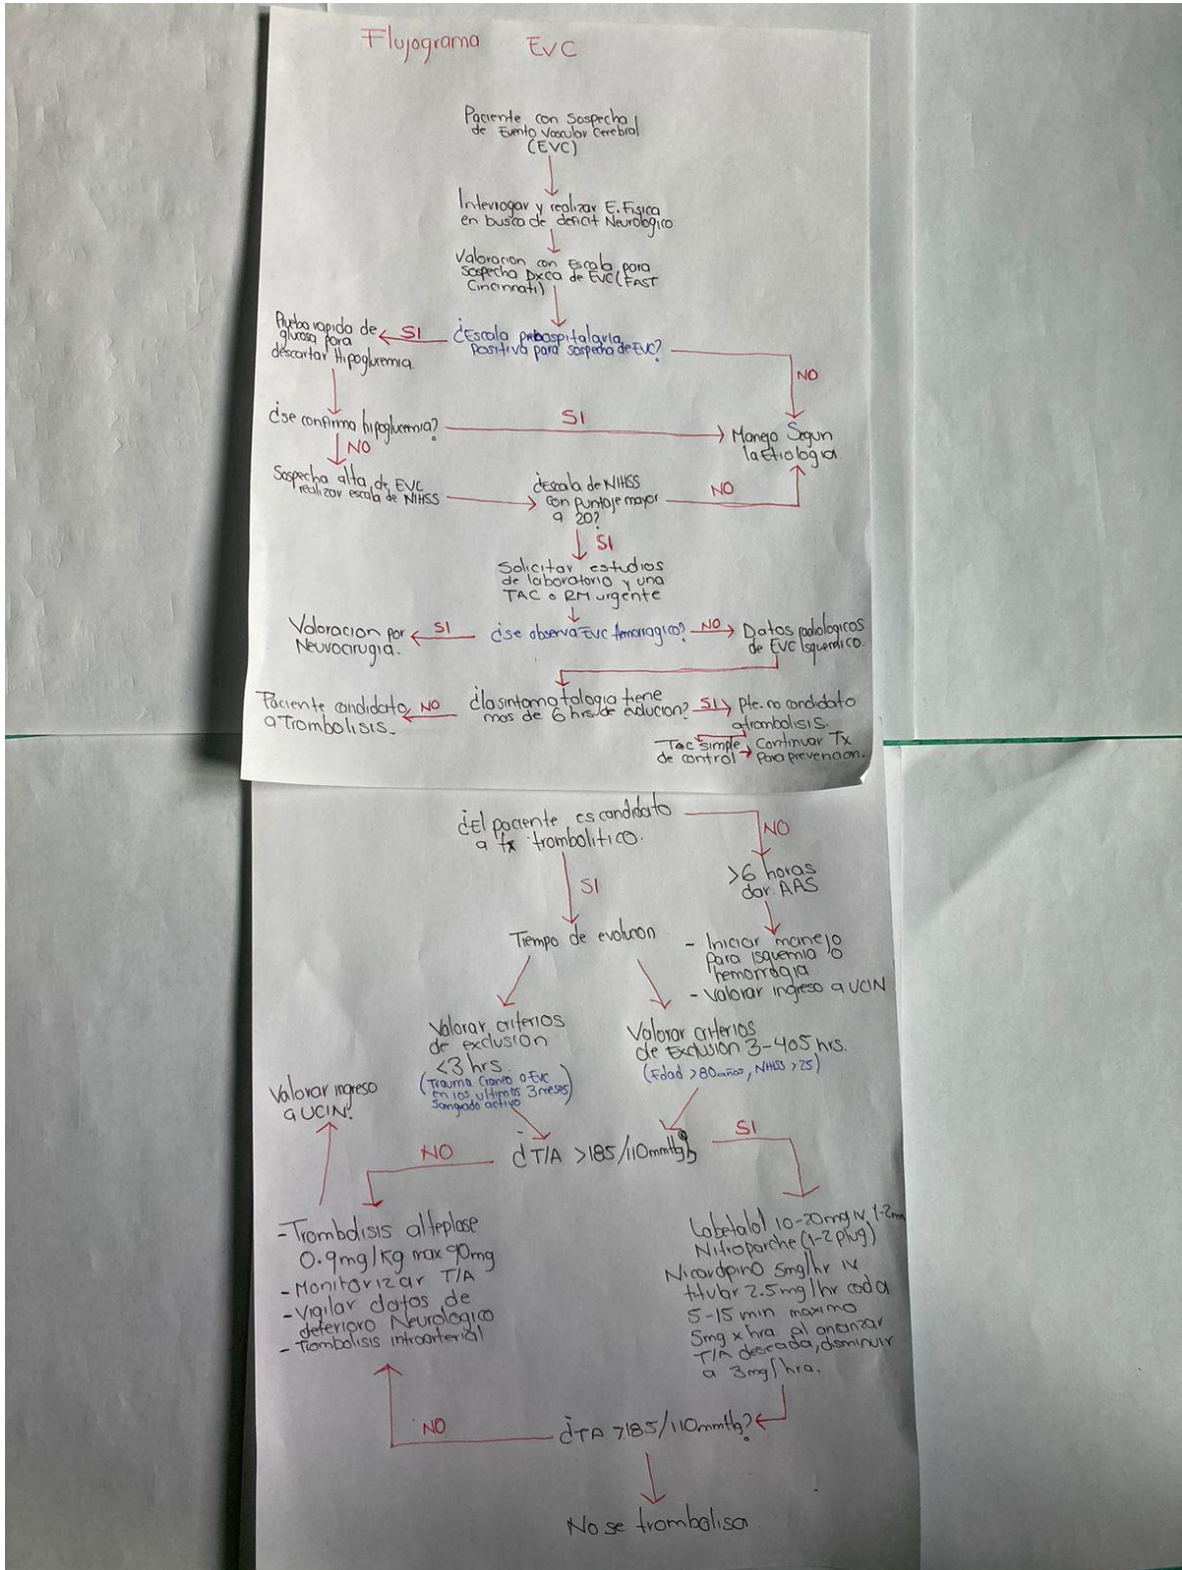 Flujograma EVC
Paciente con Sospecha
de Evento Vascular Cerebral
(EVC)
Interrogar y realizar E. Fisica
en busca de deficit Neurologico
Valoracion con Escala para
sospecha Dxca de EVC (FAST
Cincinnati)
¿Escala prehospitalaria
positiva para sospecha de EVC?
SI
NO
Prueba rapida de
glucosa para
descartar Hipoglucemia.
¿se confirma hipoglucemia?
SI
NO
Manejo Segun
la Etiologia.
Sospecha alta de EVC
realizar escala de NIHSS
¿escala de NIHSS
con puntaje mayor
a 20?
NO
SI
Solicitar estudios
de laboratorio y una
TAC o RM urgente
¿se observa EVC hemorragico?
SI
NO
Valoracion por
Neurocirugia.
Datos radiologicos
de EVC Isquemico.
¿la sintomatologia tiene
mas de 6 hrs de evolucion?
NO
SI
Paciente candidato
a Trombolisis.
Pte. no candidato
a trombolisis.
Tac simple
de control
Continuar Tx
para prevencion.
¿El paciente es candidato
a tx trombolitico.
NO
SI
>6 horas
dar. AAS
- Iniciar manejo
para isquemia o
hemorragia
- Valorar ingreso a UCIN
Tiempo de evolucion
Valorar criterios
de exclusion
<3 hrs.
(Trauma Craneo o EVC
en los ultimos 3 meses)
Sangrado activo
Valorar criterios
de Exclusion 3-405 hrs.
(Edad >80 años, NIHSS >25)
Valorar ingreso
a UCIN.
¿T/A >185/110mmHg?
NO
SI
- Trombolisis alteplase
0.9mg/Kg max 90mg
- Monitorizar T/A
- Vigilar datos de
deterioro Neurologico
- Trombolisis intraarterial
Labetalol 10-20mg IV 1-2
Nitroparche (1-2 plug)
Nicardipino 5mg/hr IV
titular 2.5mg/hr cada
5-15 min maximo
5mg x hra. al
T/A deseada, disminuir
a 3mg/hra.
¿TA >185/110mmHg?
NO
No se trombolisa.